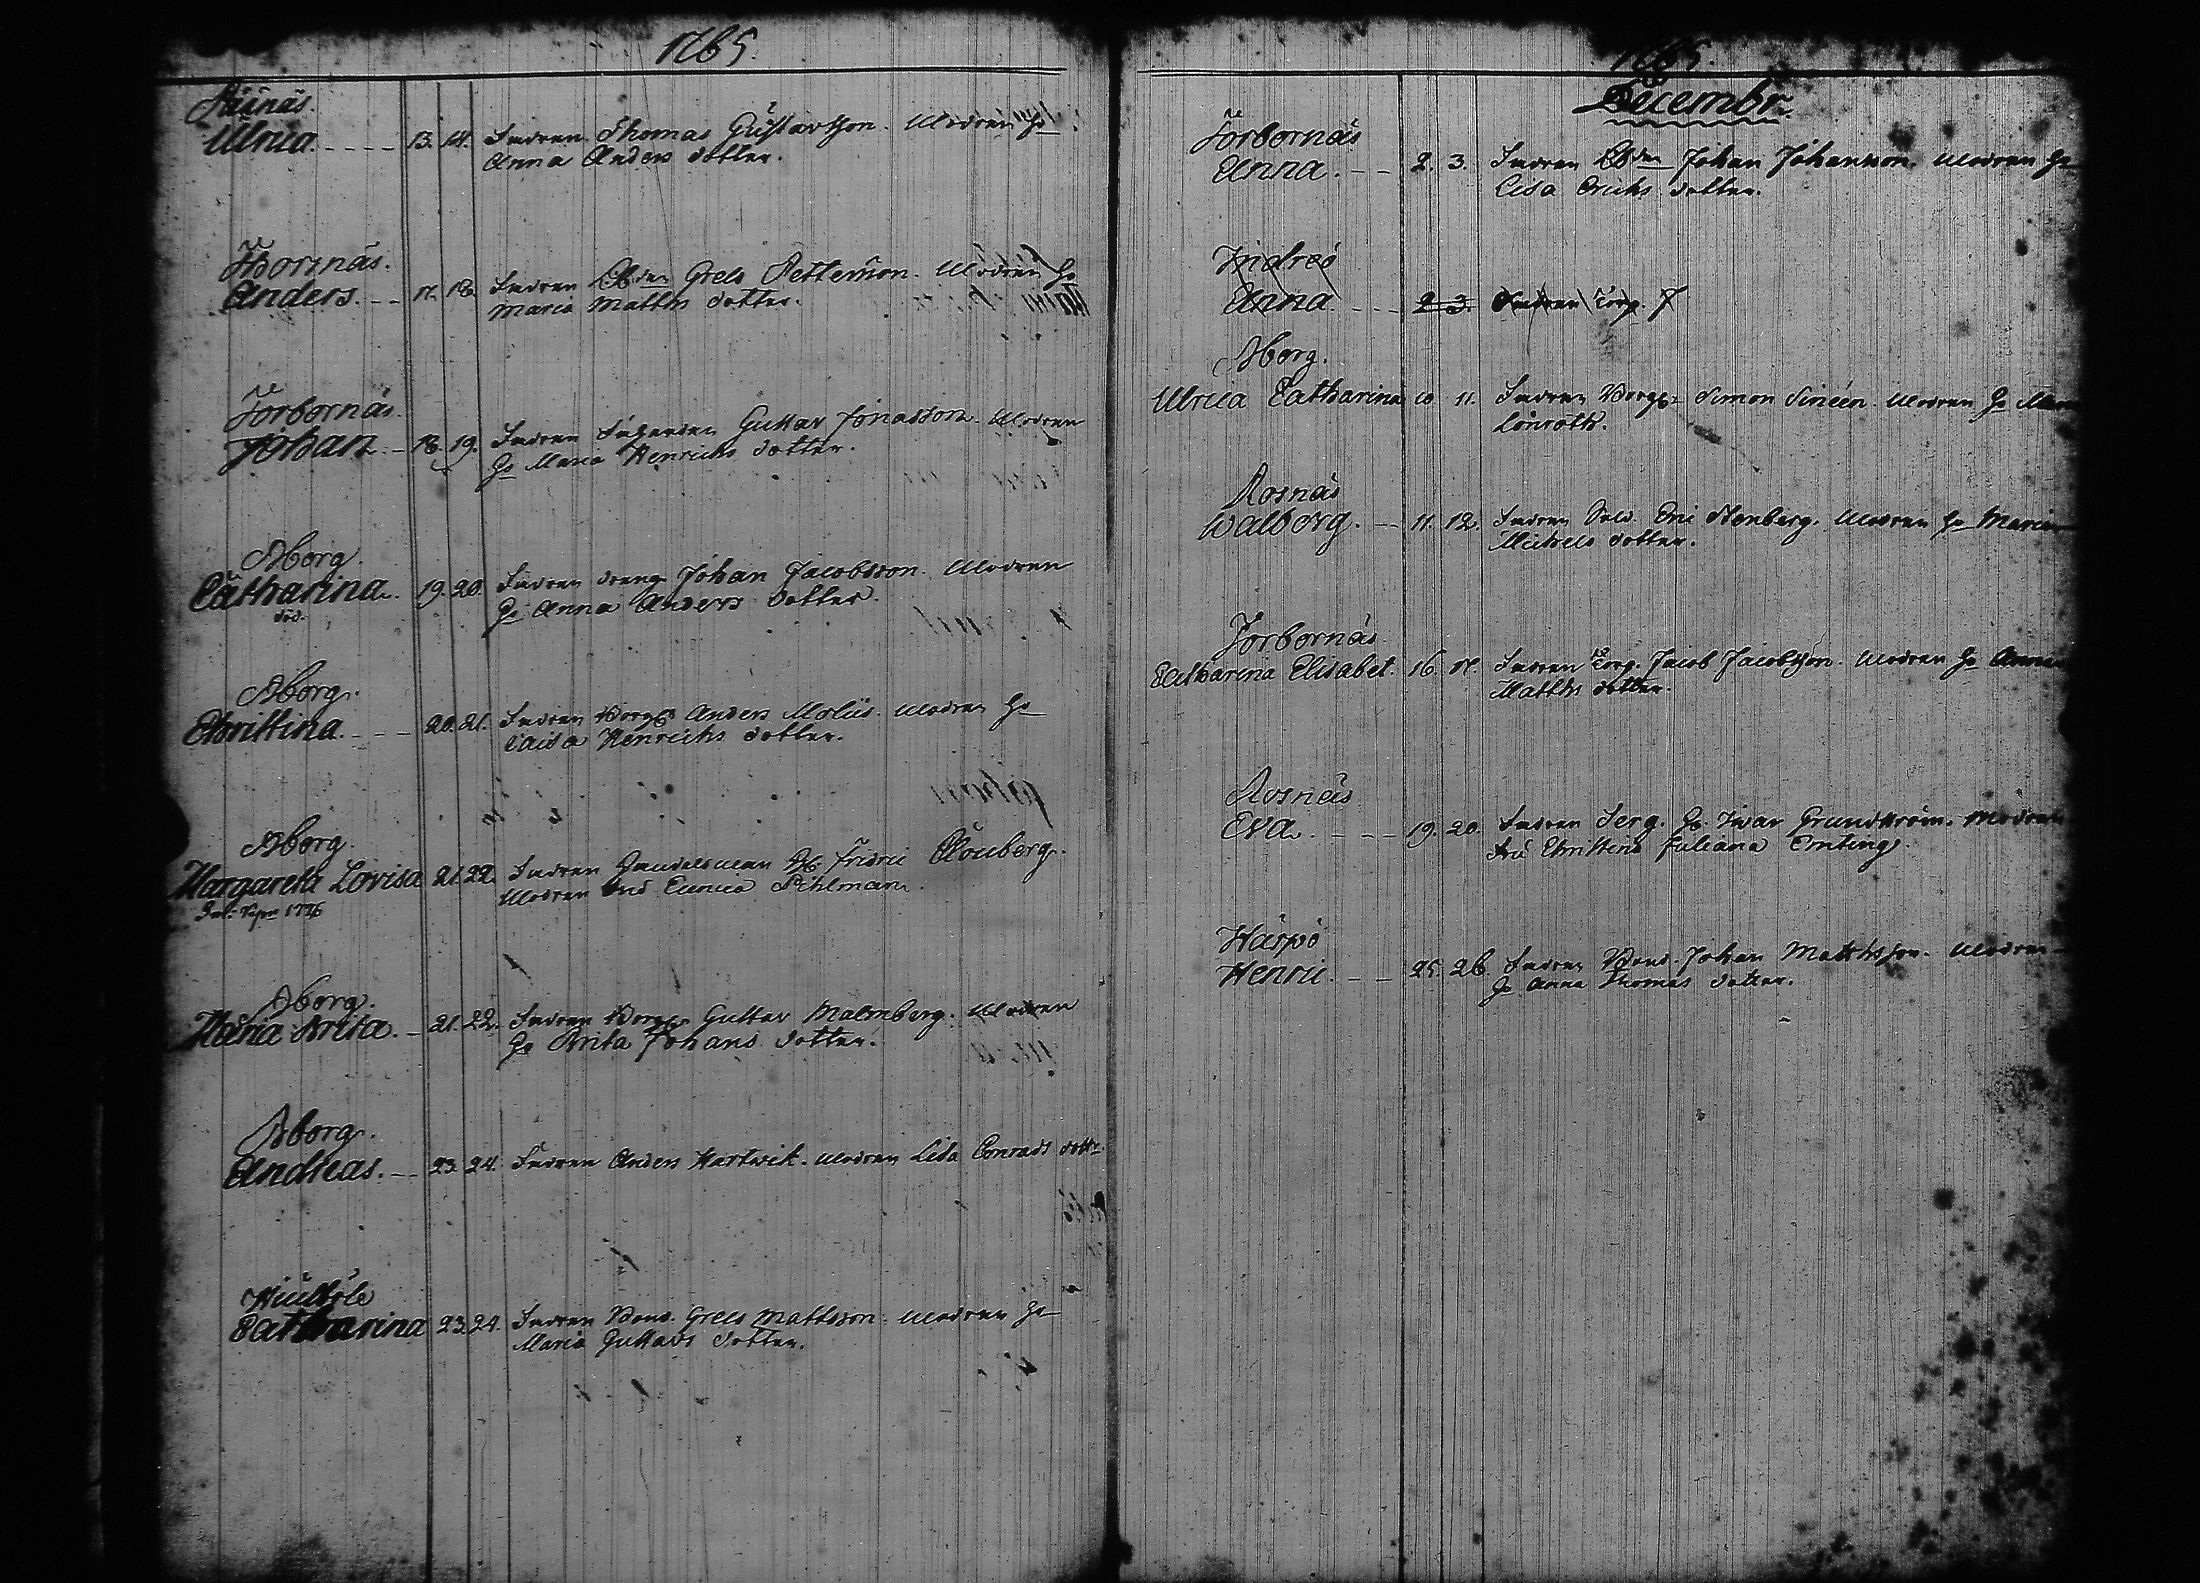 1765.
Ulrica. 13. 14. Fadren Thomas Gustavsson. Modren Hu
Anna Anders dotter.
Anders. 17. 18. Fadren Grels Pettersson. Modren Hu
Maria Matths dotter.
Torbornäs.
Johan. 18. 19. Fadren Gustav Jönasson. Modren
Hu Maria Henrichs dotter.
Åborg.
Catharina. 19. 20. Fadren dreng Johan Jacobsson. Modren
död. Hu Anna Anders dotter.
Åborg.
Christina. 20. 21. Fadren Borg. Anders Moliis. Modren Hu
Caisa Henrichs dotter.
Åborg.
Margareta Lovisa 21. 22. Fadren Handelsman Hr Fridric Clouberg.
Modren Pihlman.
1776
Åborg.
Maria Brita. 21. 22. Fadren Borg. Gustav Malmberg. Modren
Hu Brita Johans dotter.
Åborg.
Andreas. 23. 24. Fadren Anders Hartwik. Modren Lisa Conrads dottr
Catharina 23. 24. Fadren Bond. Grels Mattsson. Modren Hu
Maria Gustavs dotter.
1765.
Decembr.
Torbornäs
Anna. 2. 3. Fadren Johan Johansson. Modren Hu
Lisa Erichs dotter.
Anna 2 3. Fadren Torp. J
Åborg.
Ulrica Catharina 10 11. Fadren Borg. Simon Sinéen. Modren Hu
Lönroth.
Rosnäs
Walborg. 11. 12. Fadren Sold. Eric Stenberg. Modren Hu Maria
Michels dotter.
Torbornäs
Catharina Elisabet. 16. 17. Fadren Torp. Jacob Jacobsson. Modren Hu Anna
Matths dotter.
Rosnäs
Eva. 19. 20. Fadren Serg. Hr Ivar Grundström. Modren
Fru Christina Juliana Emting.
Härpö
Henric. 25. 26. Fadren Bond. Johan Matthsson. Modren
Hu Anna Thomas dotter.